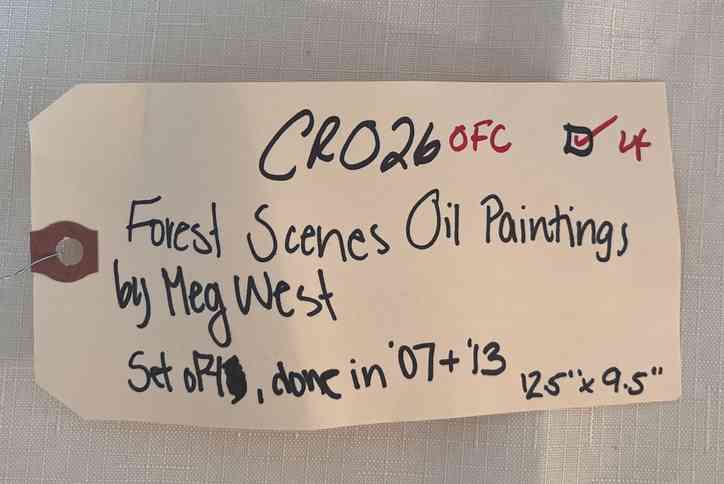 CR026 OFC ☑ 4
Forest Scenes Oil Paintings
by Meg West
Set of 4, done in '07 + '13 12.5" x 9.5"